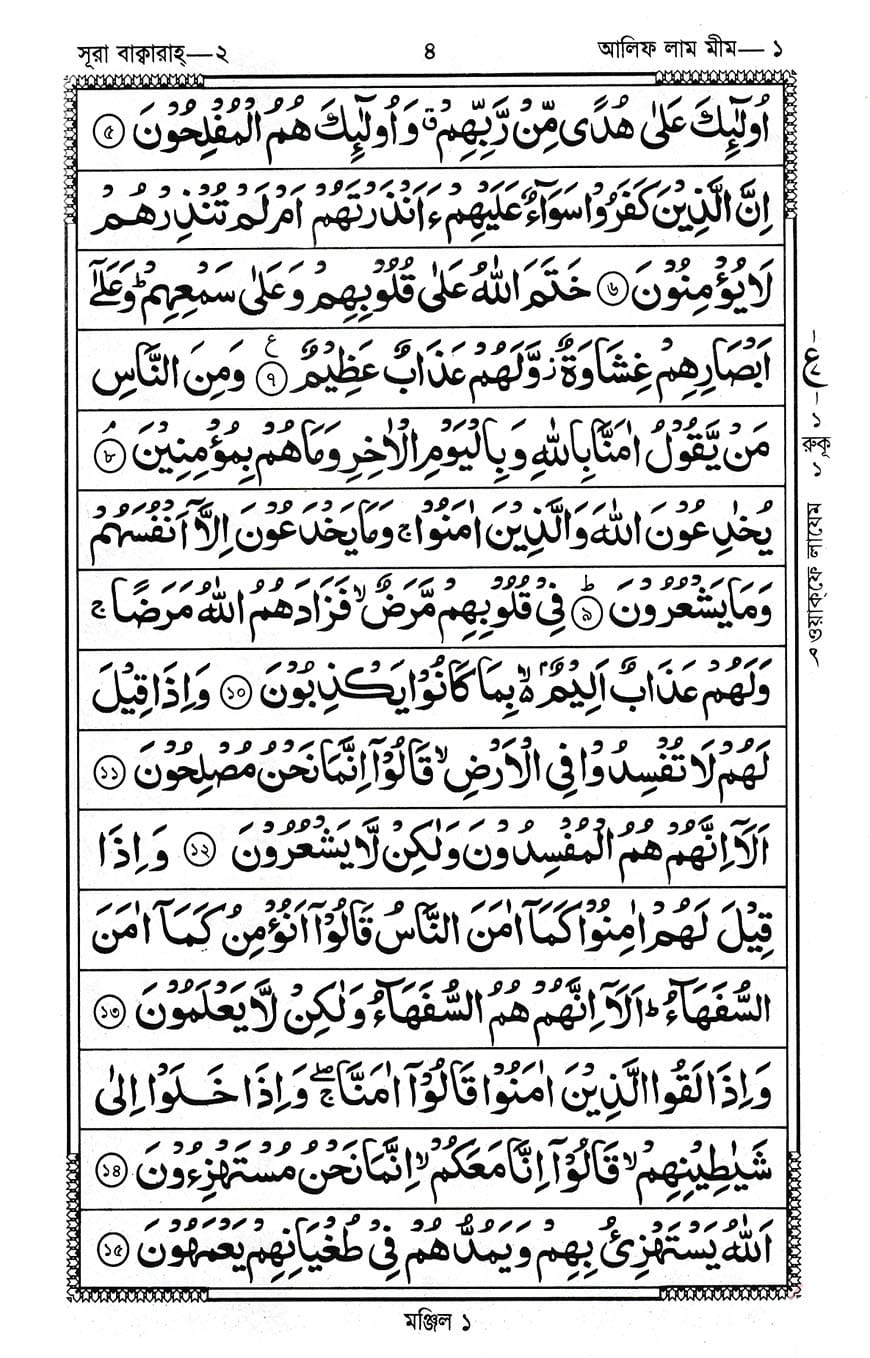 সূরা বাক্বারাহ্—২ ৪ আলিফ লাম মীম— ১
اُولٰٓئِكَ عَلٰى هُدًى مِّنْ رَّبِّهِمْ ۗ وَاُولٰٓئِكَ هُمُ الْمُفْلِحُوْنَ ৫
اِنَّ الَّذِيْنَ كَفَرُوْا سَوَآءٌ عَلَيْهِمْ ءَاَنْذَرْتَهُمْ اَمْ لَمْ تُنْذِرْهُمْ
لَا يُؤْمِنُوْنَ ৬ خَتَمَ اللهُ عَلٰى قُلُوْبِهِمْ وَعَلٰى سَمْعِهِمْ ؕ وَعَلٰٓى
اَبْصَارِهِمْ غِشَاوَةٌ ز وَّلَهُمْ عَذَابٌ عَظِيْمٌ ع ৭ وَمِنَ النَّاسِ
مَنْ يَّقُوْلُ اٰمَنَّا بِاللهِ وَبِالْيَوْمِ الْاٰخِرِ وَمَا هُمْ بِمُؤْمِنِيْنَ ۘ ৮
يُخٰدِعُوْنَ اللهَ وَالَّذِيْنَ اٰمَنُوْا ج وَمَا يَخْدَعُوْنَ اِلَّآ اَنْفُسَهُمْ
وَمَا يَشْعُرُوْنَ ؕ ৯ فِيْ قُلُوْبِهِمْ مَّرَضٌ ۙ فَزَادَهُمُ اللهُ مَرَضًا ج
وَلَهُمْ عَذَابٌ اَلِيْمٌ ۢ ۙ بِمَا كَانُوْا يَكْذِبُوْنَ ১০ وَاِذَا قِيْلَ
لَهُمْ لَا تُفْسِدُوْا فِي الْاَرْضِ ۙ قَالُوْآ اِنَّمَا نَحْنُ مُصْلِحُوْنَ ১১
اَلَآ اِنَّهُمْ هُمُ الْمُفْسِدُوْنَ وَلٰكِنْ لَّا يَشْعُرُوْنَ ১২ وَاِذَا
قِيْلَ لَهُمْ اٰمِنُوْا كَمَآ اٰمَنَ النَّاسُ قَالُوْآ اَنُؤْمِنُ كَمَآ اٰمَنَ
السُّفَهَآءُ ؕ اَلَآ اِنَّهُمْ هُمُ السُّفَهَآءُ وَلٰكِنْ لَّا يَعْلَمُوْنَ ১৩
وَاِذَا لَقُوا الَّذِيْنَ اٰمَنُوْا قَالُوْآ اٰمَنَّا ۚۖ وَاِذَا خَلَوْا اِلٰى
شَيٰطِيْنِهِمْ ۙ قَالُوْآ اِنَّا مَعَكُمْ ۙ اِنَّمَا نَحْنُ مُسْتَهْزِءُوْنَ ১৪
اَللهُ يَسْتَهْزِئُ بِهِمْ وَيَمُدُّهُمْ فِيْ طُغْيَانِهِمْ يَعْمَهُوْنَ ১৫
– ع – ১
রুকূ ১
م ওয়াক্‌ফে লাযেম
মঞ্জিল ১